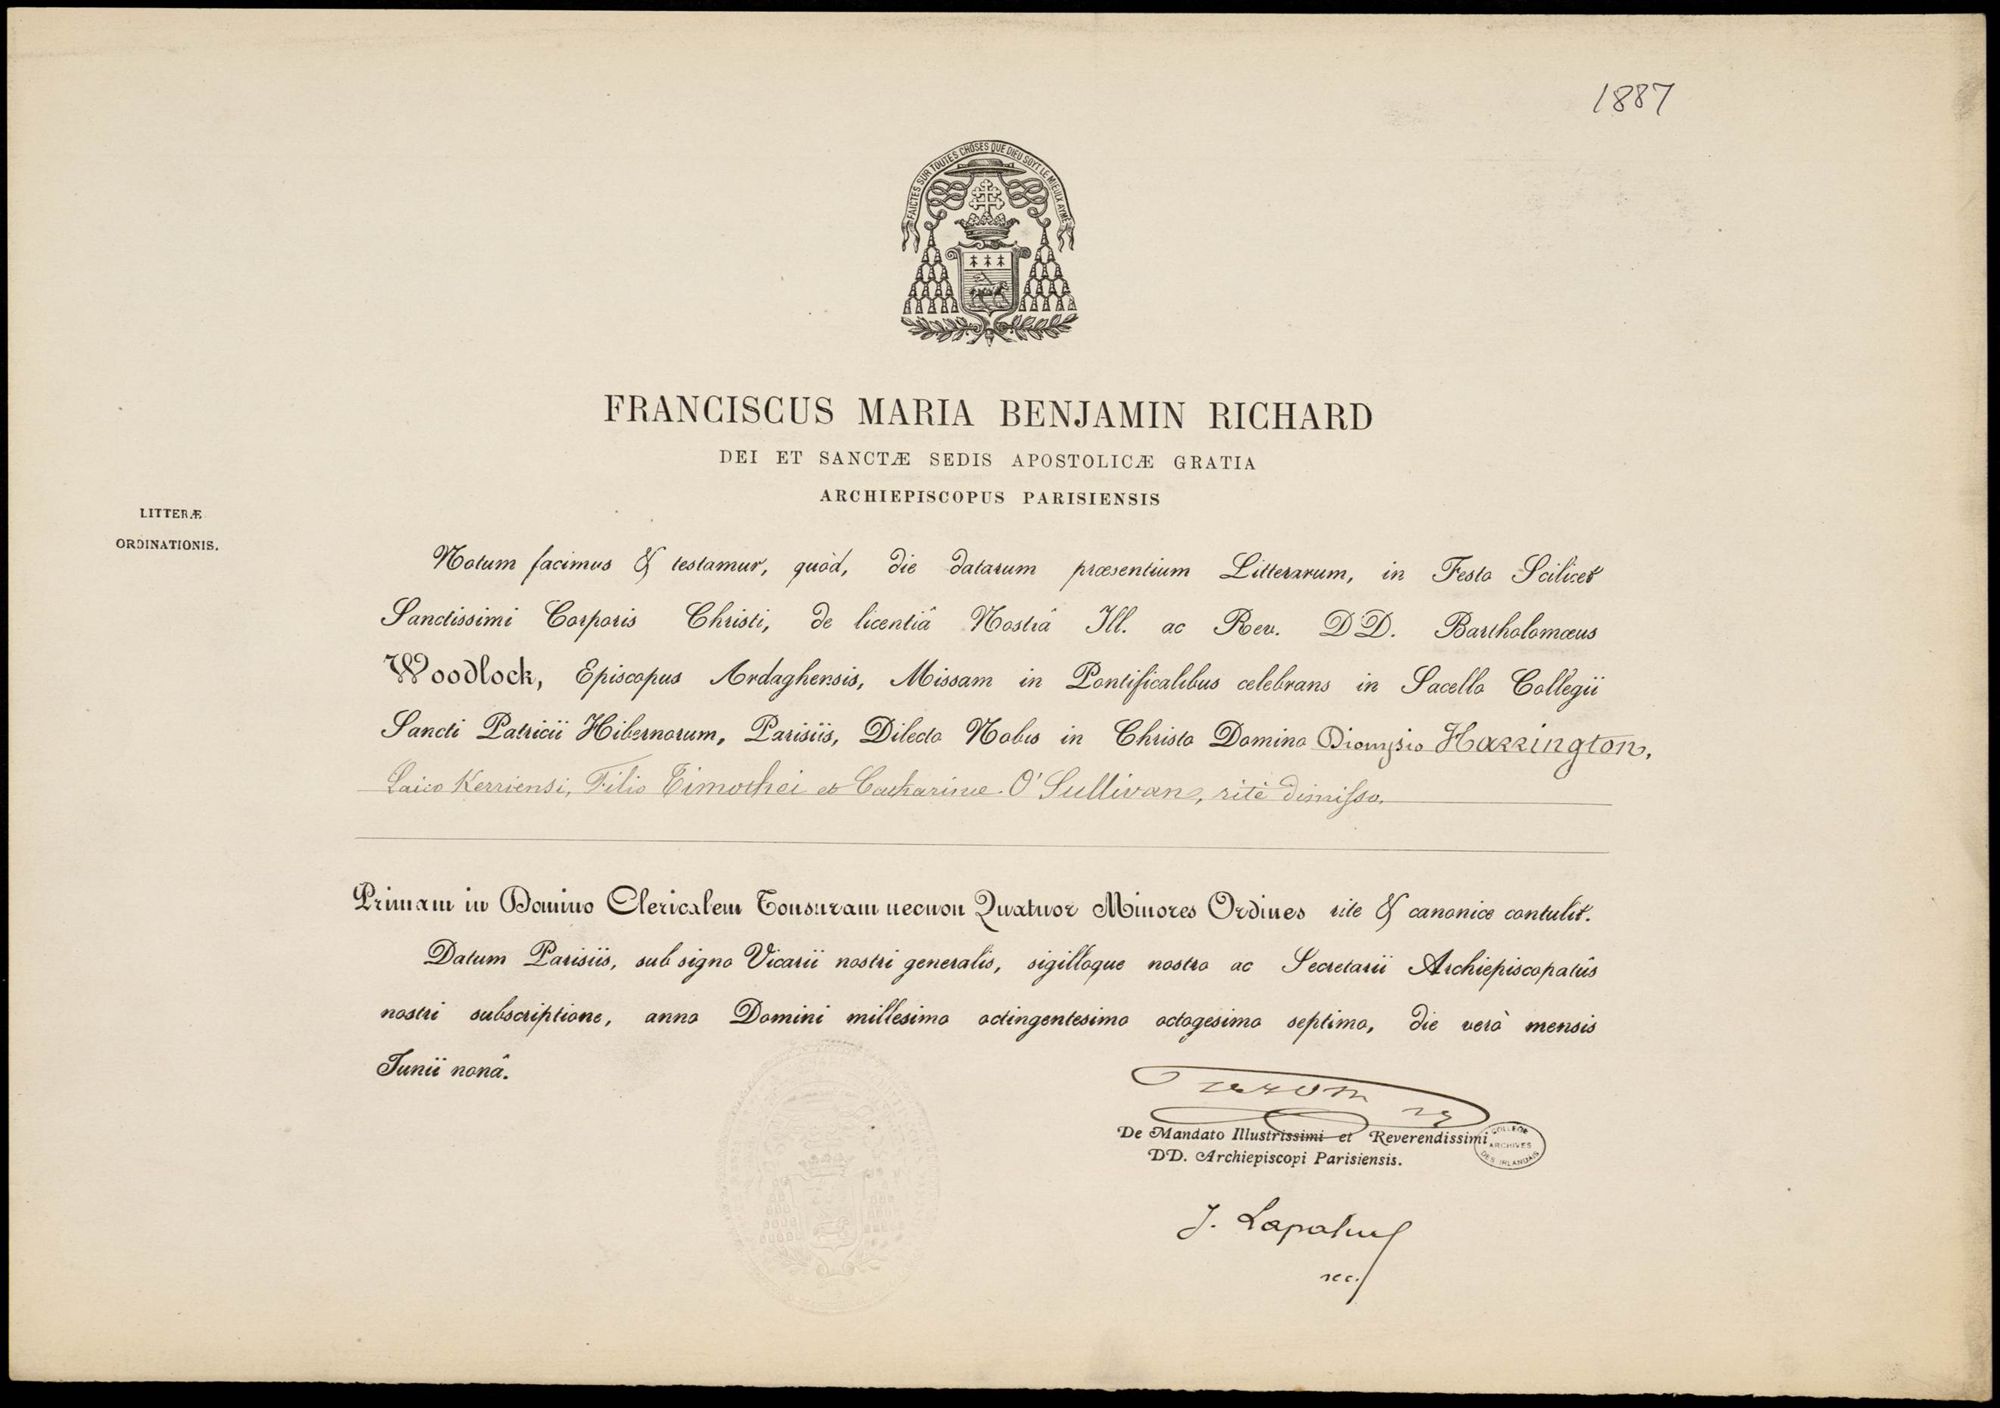 1887
FAICTES SUR TOUTES CHOSES QUE DIEU SOYT LE MIEULX AYMÉ
FRANCISCUS MARIA BENJAMIN RICHARD
DEI ET SANCTÆ SEDIS APOSTOLICÆ GRATIA
ARCHIEPISCOPUS PARISIENSIS
LITTERÆ
ORDINATIONIS.
Notum facimus & testamur, quòd, die datarum præsentium Litterarum, in Festo Scilicet
Sanctissimi Corporis Christi, de licentiâ Nostrâ Ill. ac Rev. DD. Bartholomæus
Woodlock, Episcopus Ardaghensis, Missam in Pontificalibus celebrans in Sacello Collegii
Sancti Patricii Hibernorum, Parisiis, Dilecto Nobis in Christo Domino Dionysio Harrington,
Laico Kerriensi, Filio Timothei et Catharinæ O'Sullivan, ritè dimisso.
Primam in Domino Clericalem Tonsuram necnon Quatuor Minores Ordines rite & canonice contulit.
Datum Parisiis, sub signo Vicarii nostri generalis, sigilloque nostro ac Secretarii Archiepiscopatûs
nostri subscriptione, anno Domini millesimo octingentesimo octogesimo septimo, die verò mensis
Junii nonâ.
De Mandato Illustrissimi et Reverendissimi
DD. Archiepiscopi Parisiensis.
COLLEGE
ARCHIVES
DES IRLANDAIS
J.
sec.